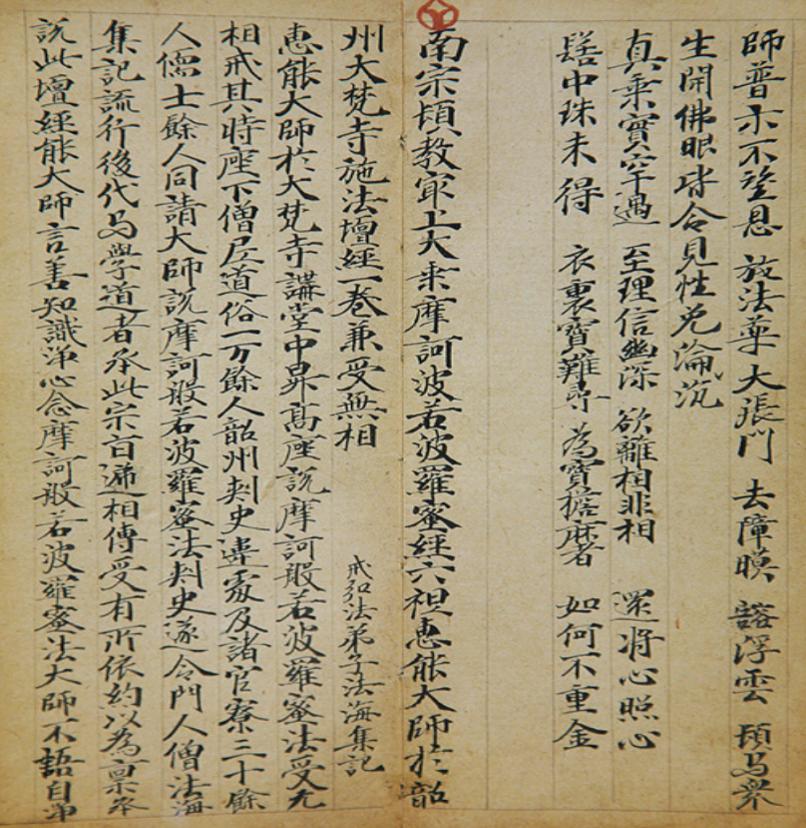 師普示不望恩 放法藥大張門 去障瞙 豁浮雲 頓為眾
生開佛眼 皆令見性免淪沉
真乘實罕遇 至理信幽深 欲離相非相 還將心照心
髻中珠未得 衣裏寶難尋 為寶擔麻者 如何不重金
南宗頓教最上大乘摩訶波若波羅蜜經六祖惠能大師於韶
州大梵寺施法壇經一卷兼受無相
戒弘法弟子法海集記
惠能大師於大梵寺講堂中昇高座說摩訶般若波羅蜜法受无
相戒其時座下僧尼道俗一万餘人韶州刾史違處及諸官寮三十餘
人儒士餘人同請大師說摩訶般若波羅蜜法刾史遂令門人僧法海
集記流行後代為學道者承此宗旨遞相傳受有所依約以為稟承
說此壇經能大師言善知識淨心念摩訶般若波羅蜜法大師不語自淨